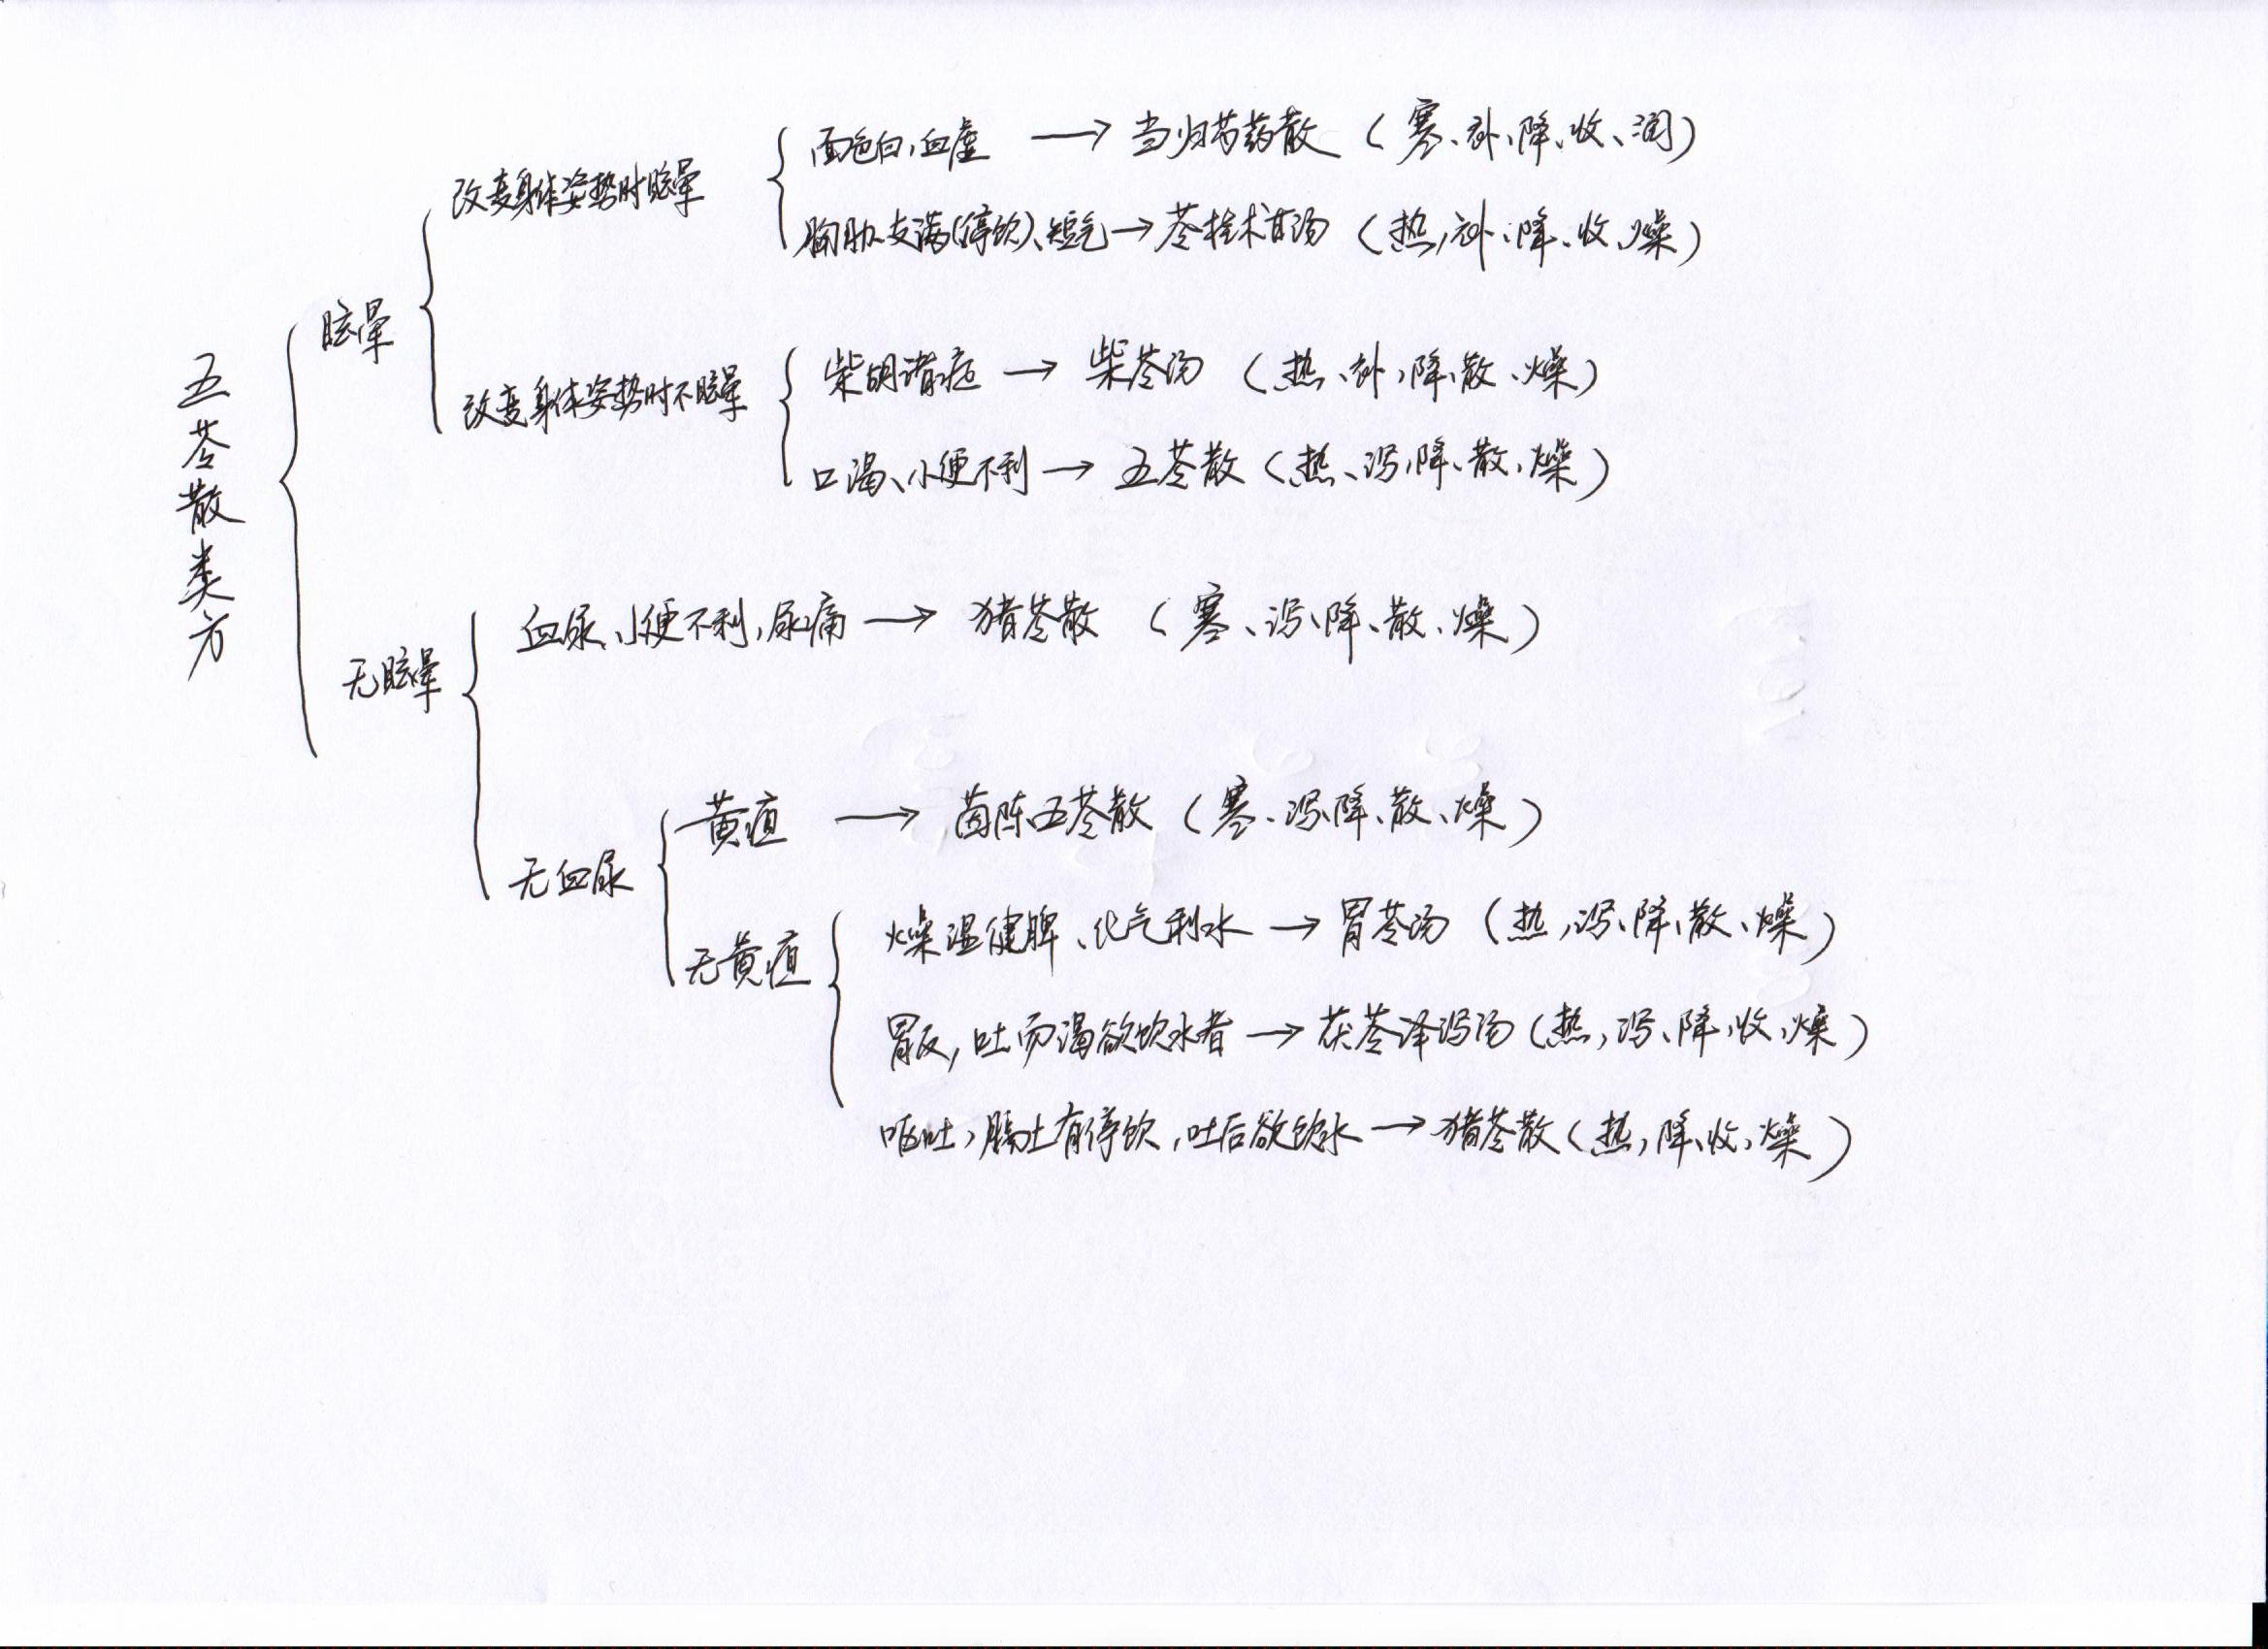 五苓散类方
眩晕
改变身体姿势时眩晕
面色白,血虚 → 当归芍药散 (寒、补、降、收、润)
胸胁支满(停饮)、短气 → 苓桂术甘汤 (热,补、降、收、燥)
改变身体姿势时不眩晕
柴胡诸症 → 柴苓汤 (热、补,降、散、燥)
口渴、小便不利 → 五苓散 (热、泻,降、散,燥)
无眩晕
血尿、小便不利,尿痛 → 猪苓散 (寒、泻、降、散、燥)
无血尿
黄疸 → 茵陈五苓散 (寒、泻、降、散、燥)
无黄疸
燥湿健脾、化气利水 → 胃苓汤 (热,泻、降、散、燥)
胃反,吐而渴欲饮水者 → 茯苓泽泻汤 (热,泻、降,收,燥)
呕吐,膈上有停饮,吐后欲饮水 → 猪苓散 (热,降、收,燥)